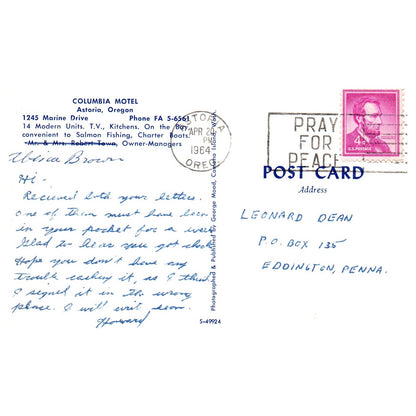 COLUMBIA MOTEL
Astoria, Oregon
1245 Marine Drive Phone FA 5-6561
14 Modern Units. T.V., Kitchens. On the Bay
convenient to Salmon Fishing, Charter Boats.
Mr. & Mrs. Robert Town, Owner-Managers
Brown
Hi -
Received both your letters.
One of them must have been
in your pocket for a week.
Glad to hear you got check
Hope you don't have any
trouble cashing it, as I think
I signed it in the wrong
place. I will writ soon.
Howard
Photographed & Published by George Mood, Cannon
S-49924
ASTORIA
APR 20
PM
1964
OREG
PRAY
FOR
PEACE
4¢
U.S. POSTAGE
POST CARD
Address
LEONARD DEAN
P.O. BOX 135
EDDINGTON, PENNA.